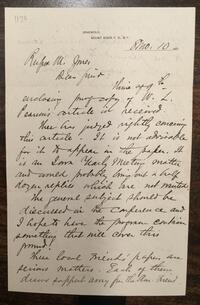 GRINDFIELD,
MOUNT KISCO P. O., N.Y.
8 mo. 10
Rufus M. Jones
Dear friend
Thine of 9th
enclosing proof copy of W. L.
Pearson's article is received.
Thee has judged rightly concerning
this article. It is not advisable
for it to appear in the paper. It
is an Iowa Yearly Meeting matter
and would probably bring out a half
dozen replies which are not wanted.
The general subject should be
discussed in the conference and
I hope to have the program contain
something that will cover this
ground.
These local Friends' papers are
serious matters. Each of them
draws support away from the Am. Friend